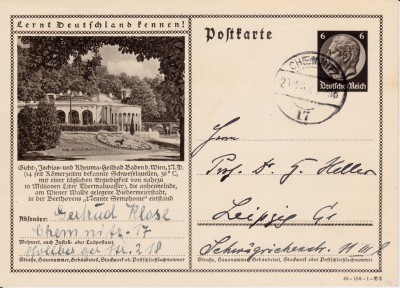 Lernt Deutschland kennen!
Postkarte
6 6
Deutsches Reich
CHEMNITZ
17
Gicht-, Ischias- und Rheuma-Heilbad Baden b. Wien,
(14 seit Römerzeiten bekannte Schwefelquellen, 36° C,
mit einer täglichen Ergiebigkeit von nahezu
10 Millionen Liter Thermalwasser), die anheimelnde,
am Wiener Walde gelegene Biedermeierstadt,
in der Beethovens „Neunte Symphonie" entstand
Absender: Gertrud Klose
Chemnitz-17
Wohnort, auch Zustell- oder Leitpostamt
Stollberger Str. 218
Straße, Hausnummer, Gebäudeteil, Stockwerk od. Postschließfachnummer
Herrn
Prof. Dr. G. Heller
Leipzig C1
Schwägrichenstr.
Straße, Hausnummer, Gebäudeteil, Stockwerk od. Postschließfachnummer